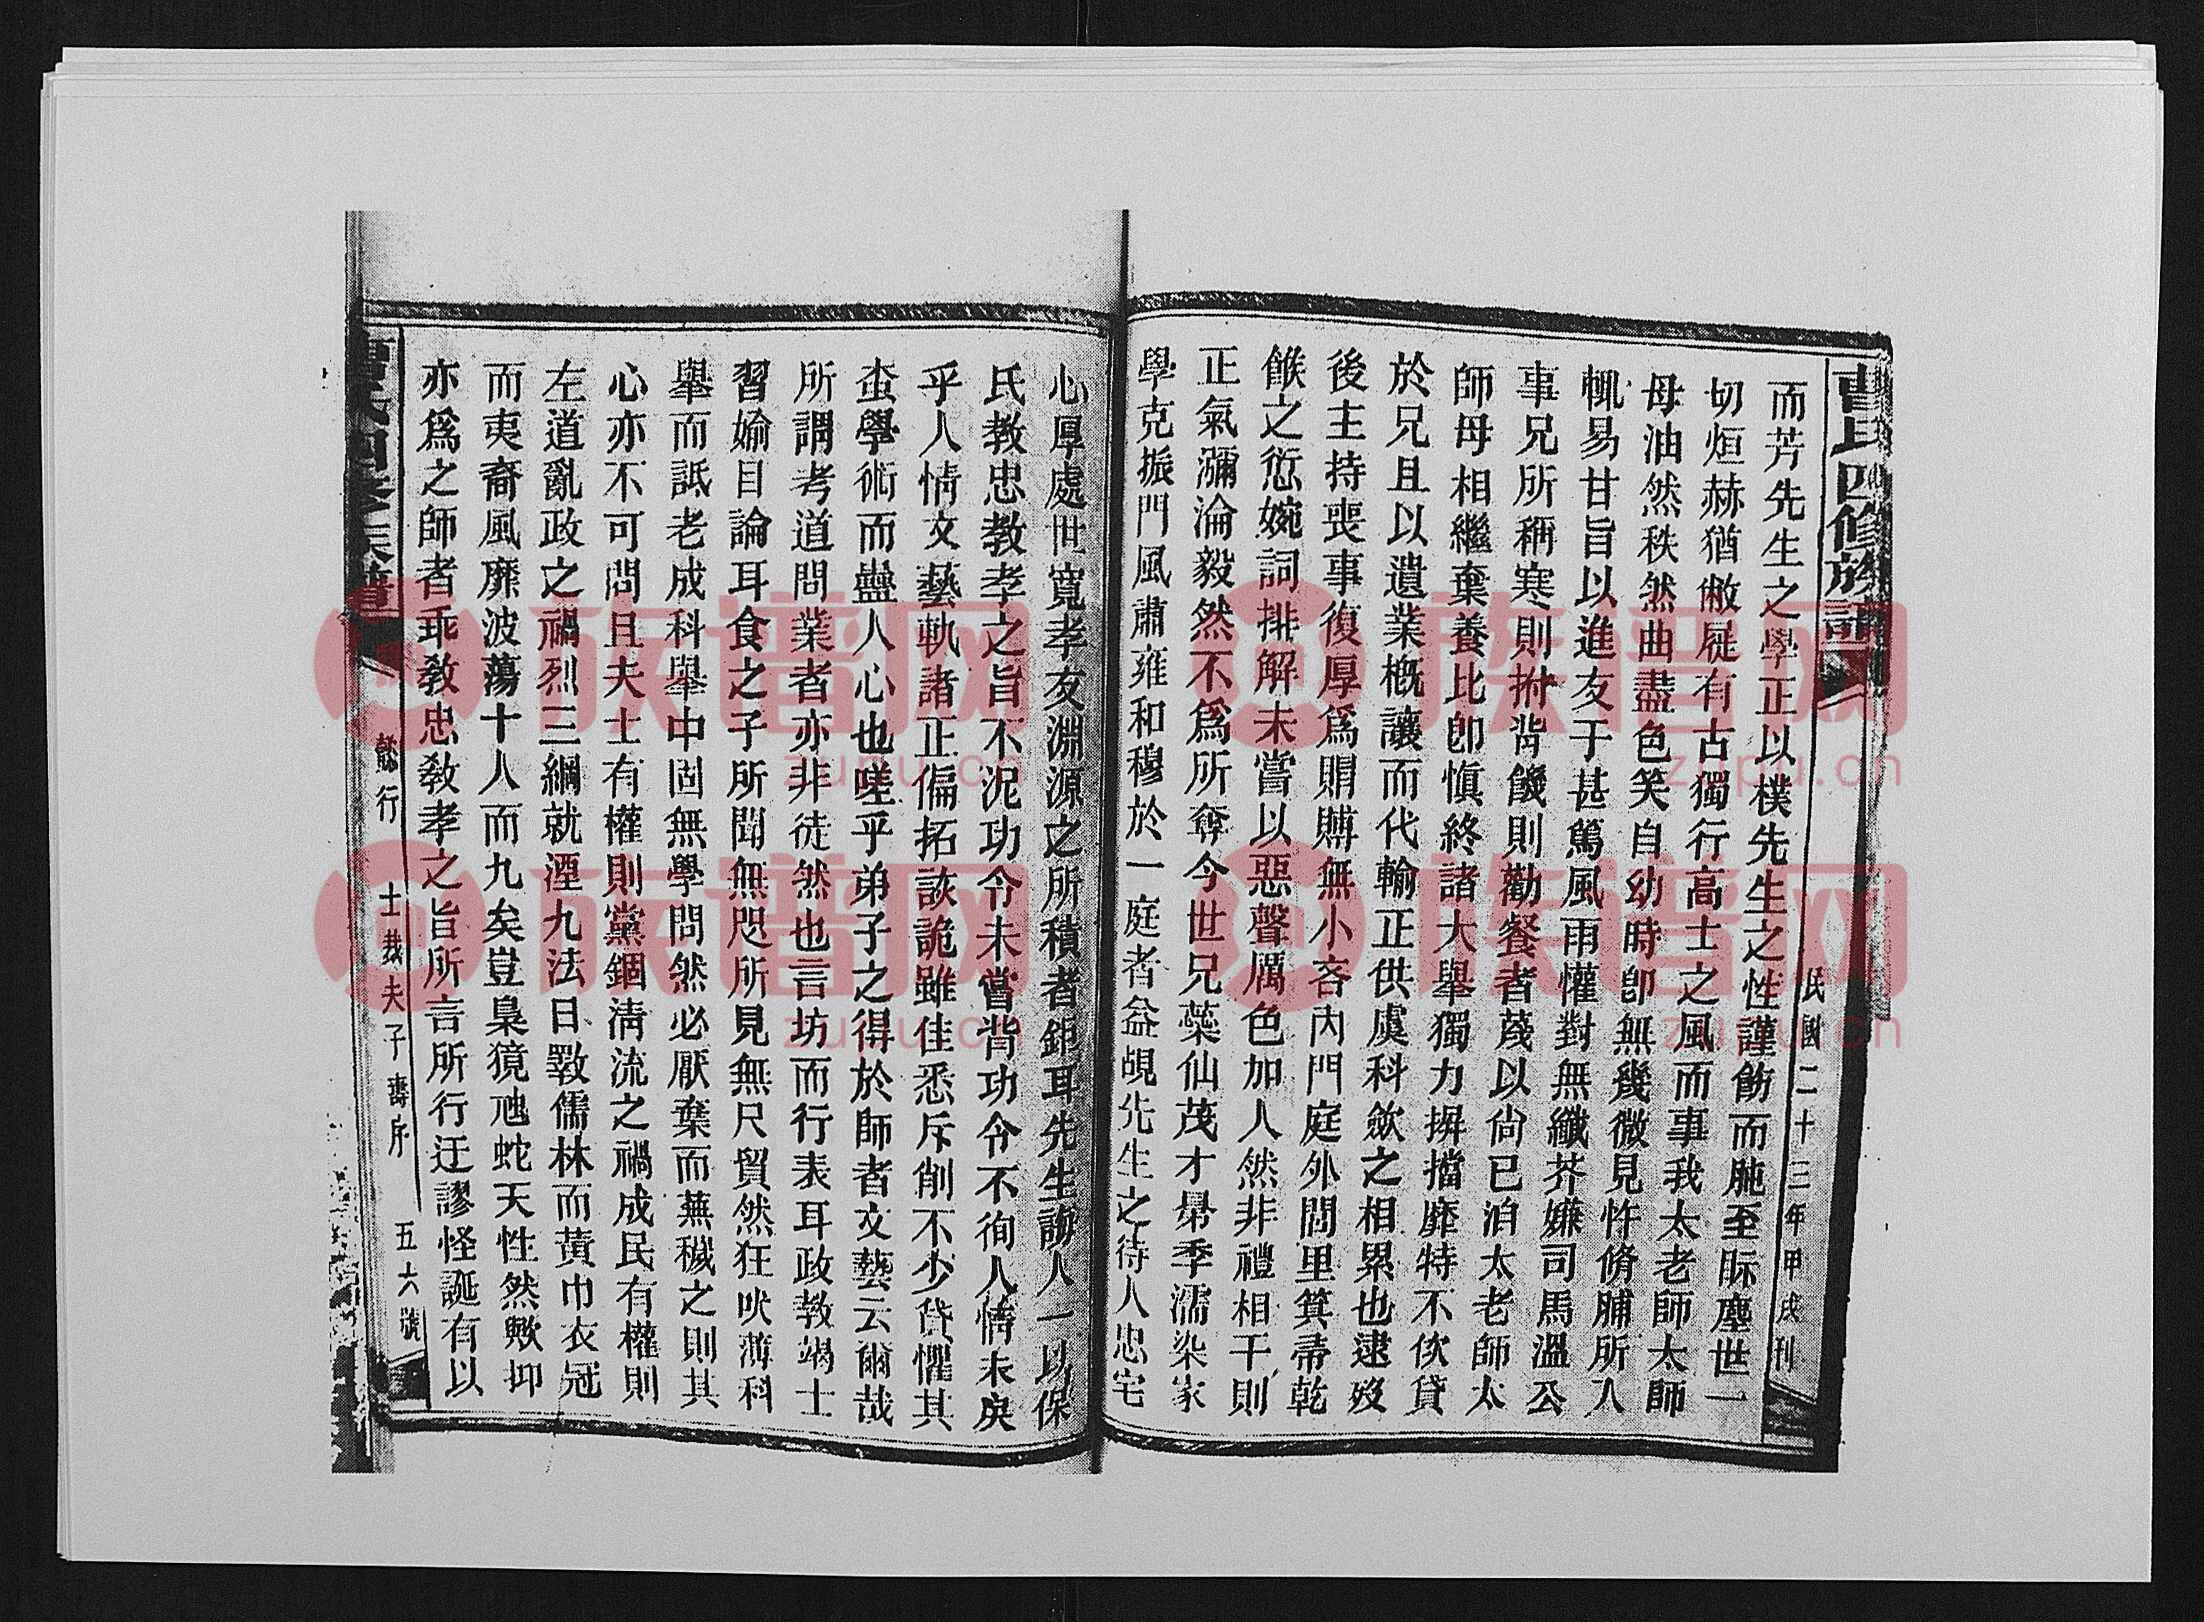 曹氏四修族譜
民國二十三年甲戌刊
而芳先生之學正以樸先生之性謹飭而肫至眎塵世一
切烜赫猶敝屣有古獨行高士之風而事我太老師太師
母油然秩然曲盡色笑自幼時卽無幾微見忤脩脯所入
輒易甘旨以進友于甚篤風雨懽對無纖芥嫌司馬溫公
事兄所稱寒則拊背饑則勸餐者蔑以尙已洎太老師太
師母相繼棄養比卽愼終諸大舉獨力摒擋靡特不佽貸
於兄且以遺業槪讓而代輸正供虞科歛之相累也逮歿
後主持喪事復厚爲賵賻無小吝內門庭外閭里箕帚乾
餱之愆婉詞排解未嘗以惡聲厲色加人然非禮相干則
正氣瀰淪毅然不爲所奪今世兄蘂仙茂才曁季濡染家
學克振門風肅雍和穆於一庭者益覘先生之待人忠宅
心厚處世寬孝友淵源之所積者鉅耳先生誨人一以保
氏教忠教孝之旨不泥功令未嘗背功令不徇人情未戾
乎人情文藝軌諸正偏拓詼詭雖佳悉斥削不少貸懼其
蛊學術而蠱人心也嗟乎弟子之得於師者文藝云爾哉
所謂考道問業者亦非徒然也言坊而行表耳政教竭士
習媮目論耳食之子所聞無咫所見無尺貿然狂吠薄科
舉而詆老成科舉中固無學問然必厭棄而蕪穢之則其
心亦不可問且夫士有權則黨錮淸流之禍成民有權則
左道亂政之禍烈三綱就湮九法日斁儒林而黃巾衣冠
而夷裔風靡波蕩十人而九矣豈梟獍虺蛇天性然歟抑
亦爲之師者乖敎忠敎孝之旨所言所行迂謬怪誕有以
曹氏四修族譜
懿行
士栽夫子壽序
五六號
族谱网
zupu.cn
族谱网
zupu.cn
族谱网
zupu.cn
族谱网
zupu.cn